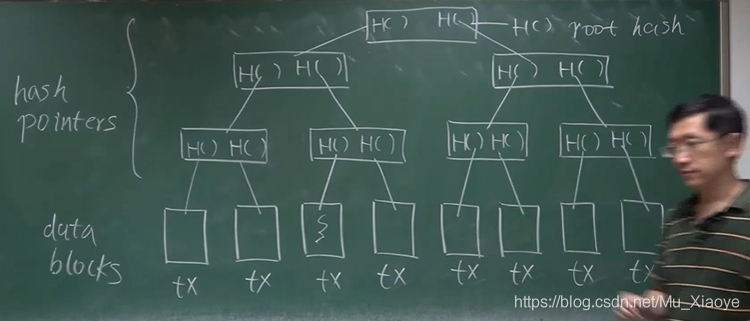 H( ) H( ) H( ) root hash
H( ) H( ) H( ) H( )
hash
pointers
H( ) H( ) H( ) H( ) H( ) H( ) H( ) H( )
data
blocks
tx tx tx tx tx tx tx tx
https://blog.csdn.net/Mu_Xiaoye